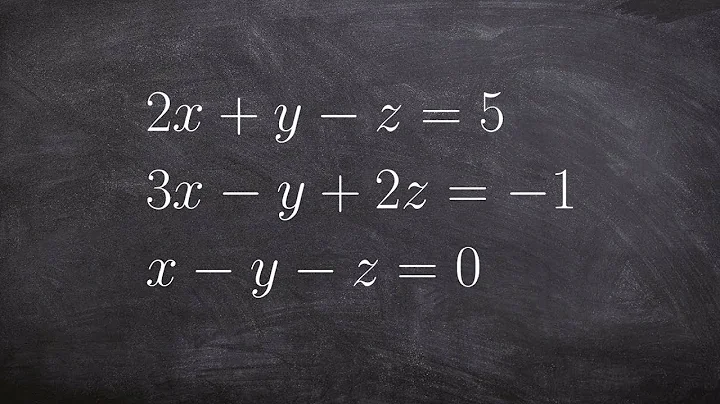 2x + y − z = 5
3x − y + 2z = −1
x − y − z = 0